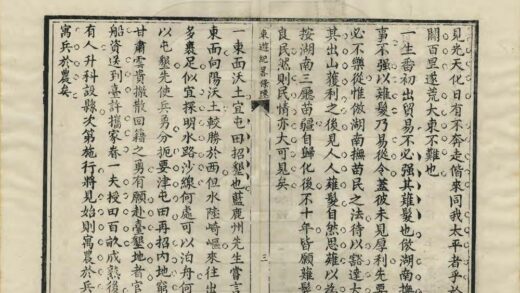 見光天化日有不奔走偕來同我太平者乎於
闢百里遐荒大東不難也
一生番初出貿易不必强其薙髮也倣湖南撫
事不强以薙髮乃易從令蓋彼未見厚利先要
必不樂從惟倣湖南撫苗民之法待以豁達大
其出山獲利之後見人人薙髮自然思薙以為
按湖南三廳苗疆自歸化後不十年皆願薙髮
良民然則民情亦大可見矣
東遊紀畧條陳
三
一東面沃土宜屯田招墾也藍鹿州先生嘗言
東面向陽沃土較勝於西但水陸崎嶇來往出
多裹足似宜探明水路沙線何處可以泊舟何
以屯墾先使兵勇分扼要津屯田再招内地窮
甘肅雲貴撤散回籍之勇有願赴臺墾地者官
船資送到臺許攜家眷一夫授田百畝成熟後
有人升科設縣次第施行將見始則寓農於兵
寓兵於農矣